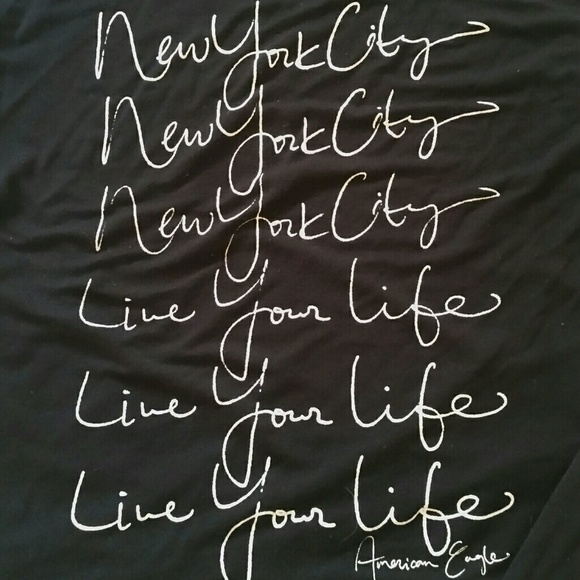 New York City
New York City
New York City
Live Your life
Live Your life
Live Your life
American Eagle